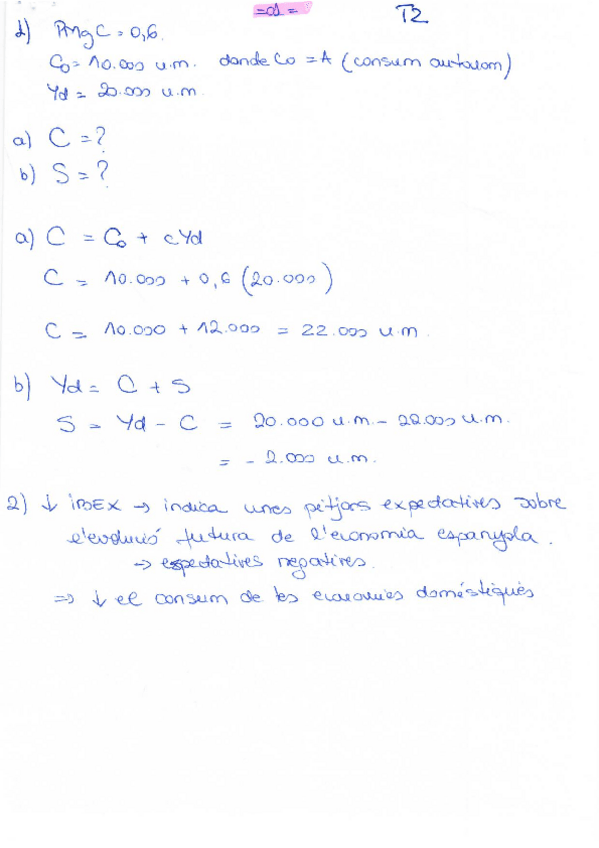 =01=
T2
1) PMgC = 0,6.
C₀ = 10.000 u.m. donde C₀ = A (consum autonom)
Yd = 20.000 u.m.
a) C = ?
b) S = ?
a) C = C₀ + cYd
C = 10.000 + 0,6 (20.000)
C = 10.000 + 12.000 = 22.000 u.m.
b) Yd = C + S
S = Yd - C = 20.000 u.m. - 22.000 u.m.
= - 2.000 u.m.
2) ↓ IBEX → indica unes pitjors expectatives sobre
l'evolució futura de l'economia espanyola.
→ expectatives negatives.
⇒ ↓ el consum de les economies domèstiques